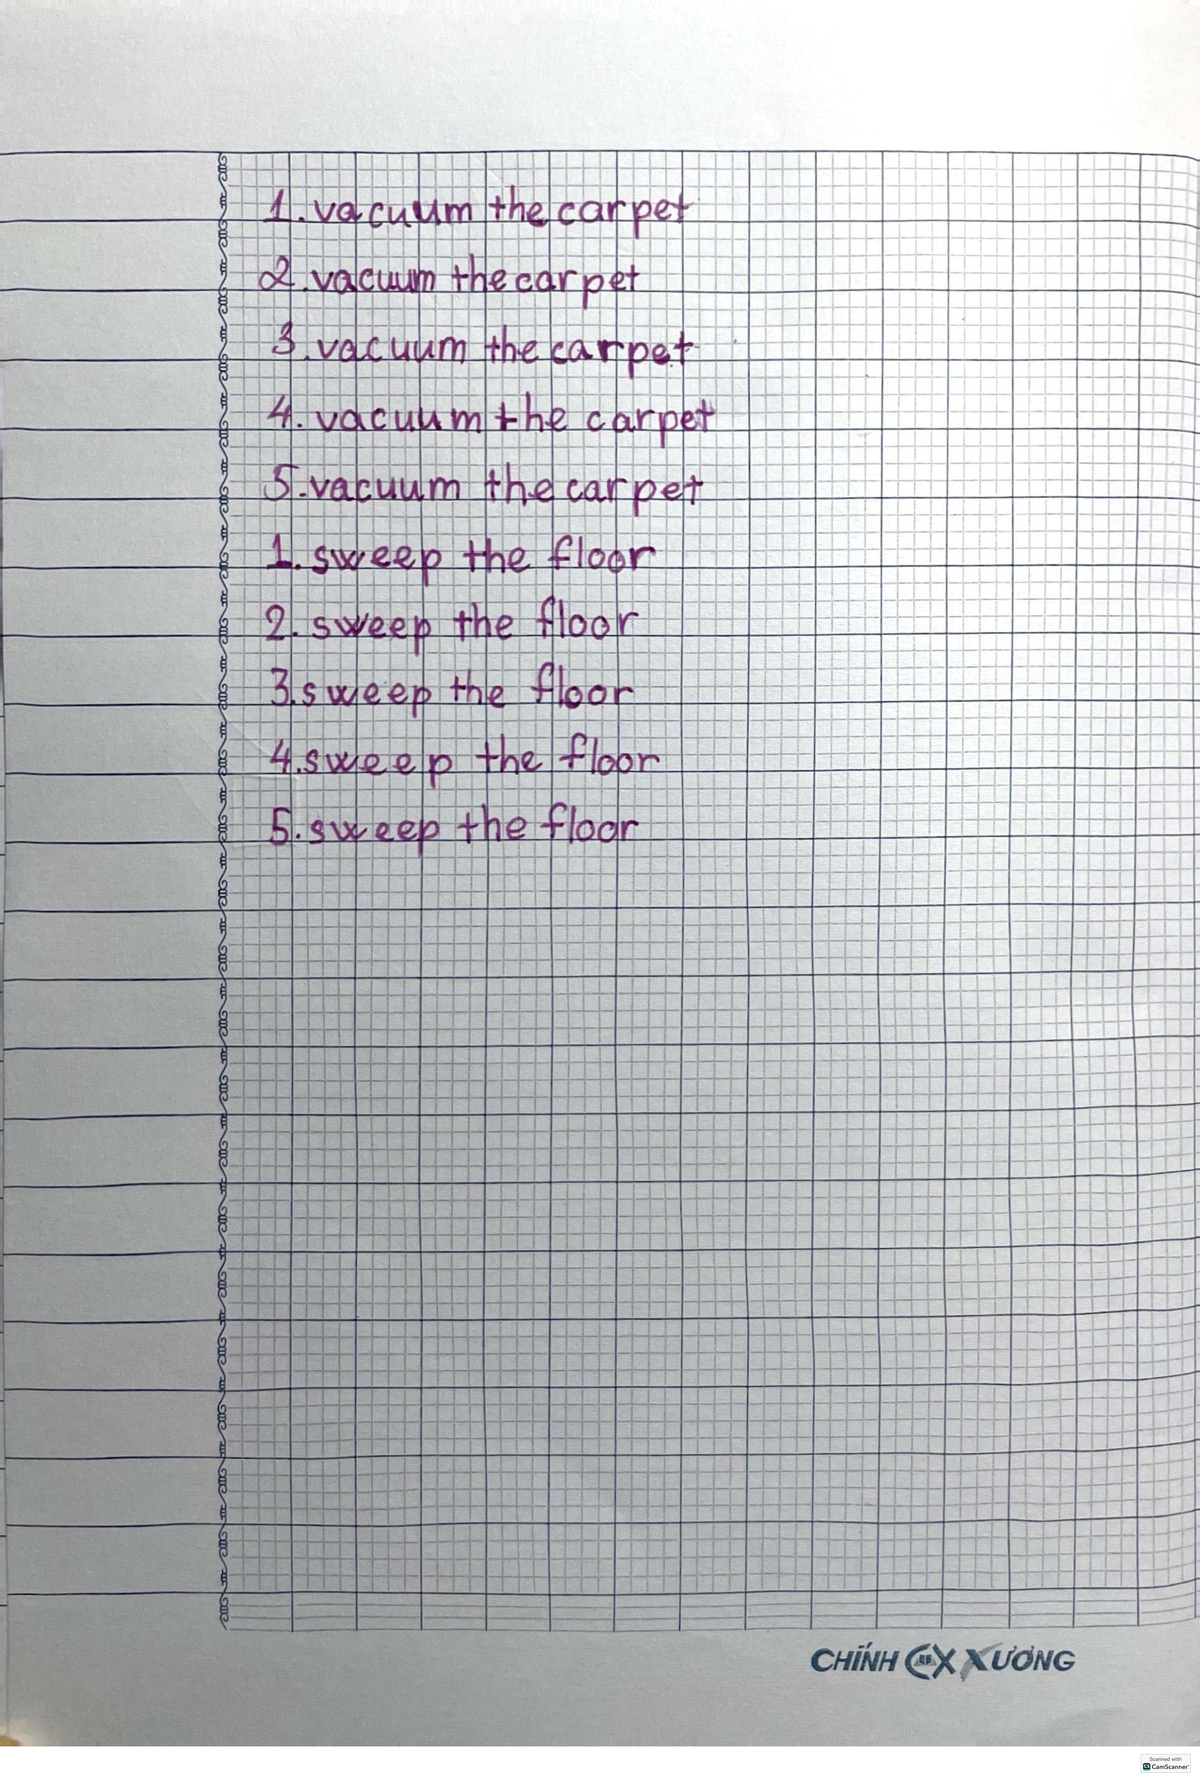 1. vacuum the carpet
2. vacuum the carpet
3. vacuum the carpet
4. vacuum the carpet
5. vacuum the carpet
1. sweep the floor
2. sweep the floor
3. sweep the floor
4. sweep the floor
5. sweep the floor
CHÍNH CX XƯƠNG
Scanned with
CamScanner